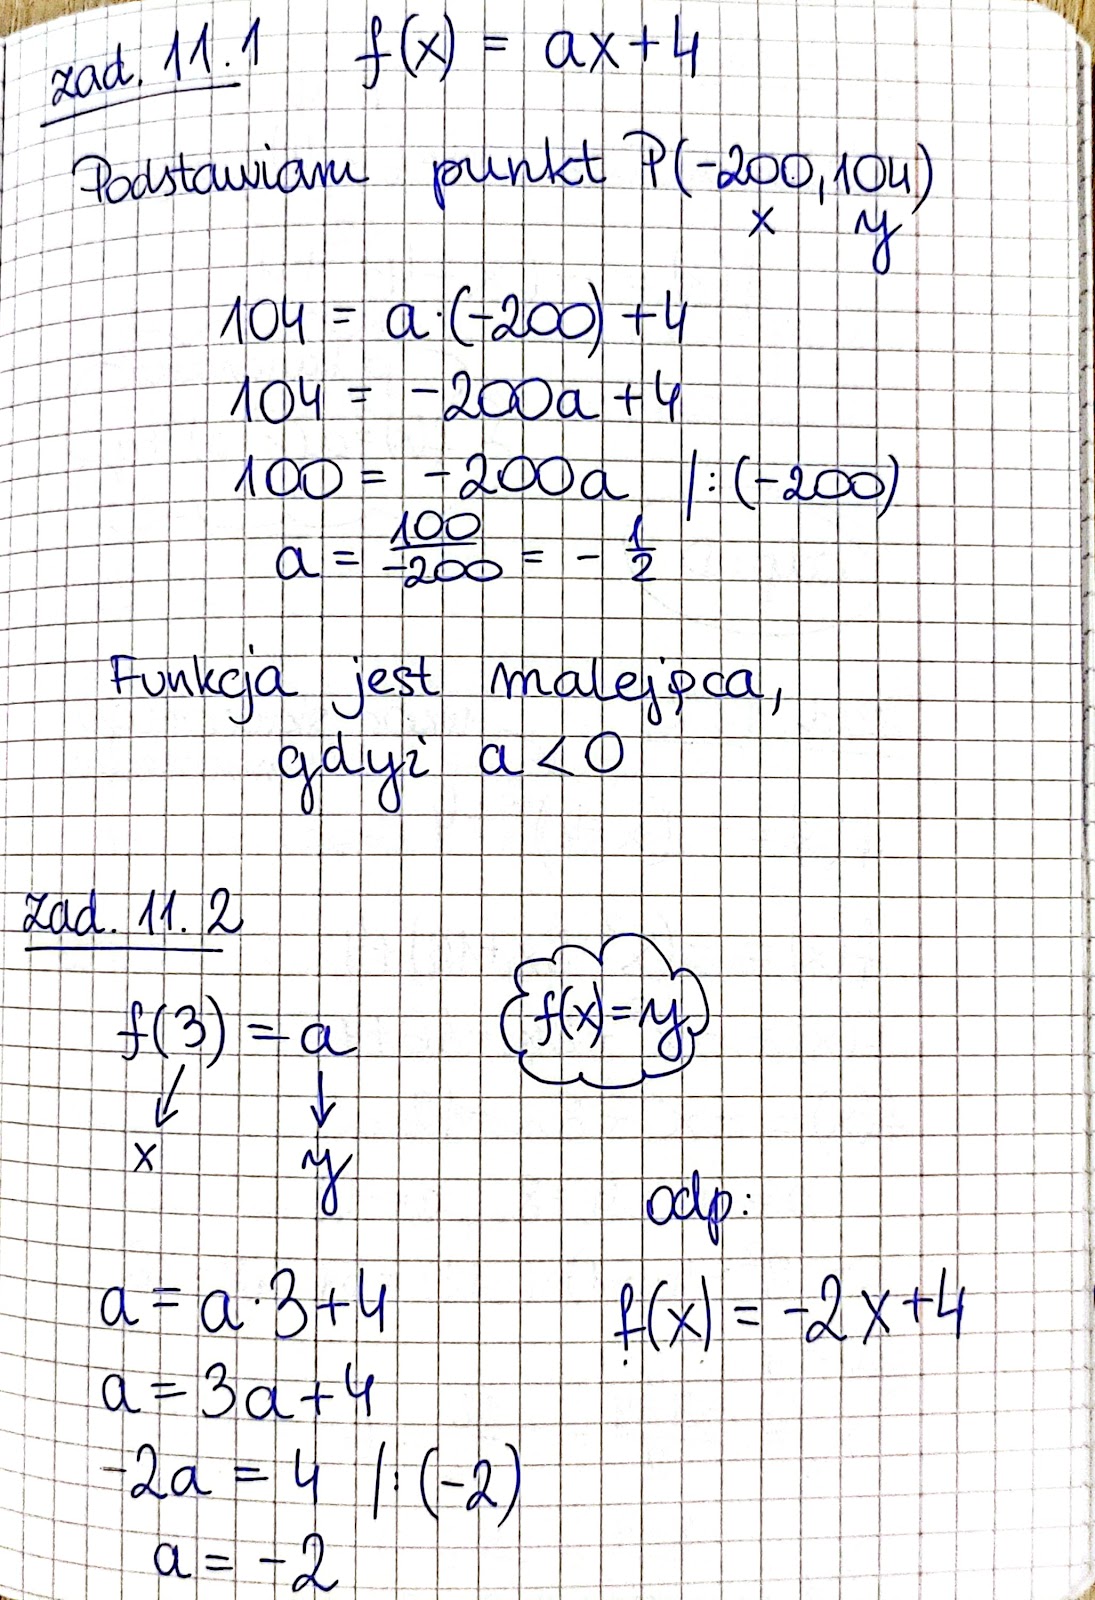 zad. 11.1 f(x) = ax+4
Podstawiam punkt P(-200,104)
x y
104 = a·(-200) +4
104 = -200a +4
100 = -200a /:(-200)
a = 100/-200 = - 1/2
Funkcja jest malejąca,
gdyż a<0
zad. 11.2
f(3) = a
f(x)=y
x y
odp:
a = a·3+4
f(x) = -2x+4
a = 3a+4
-2a = 4 /:(-2)
a = -2